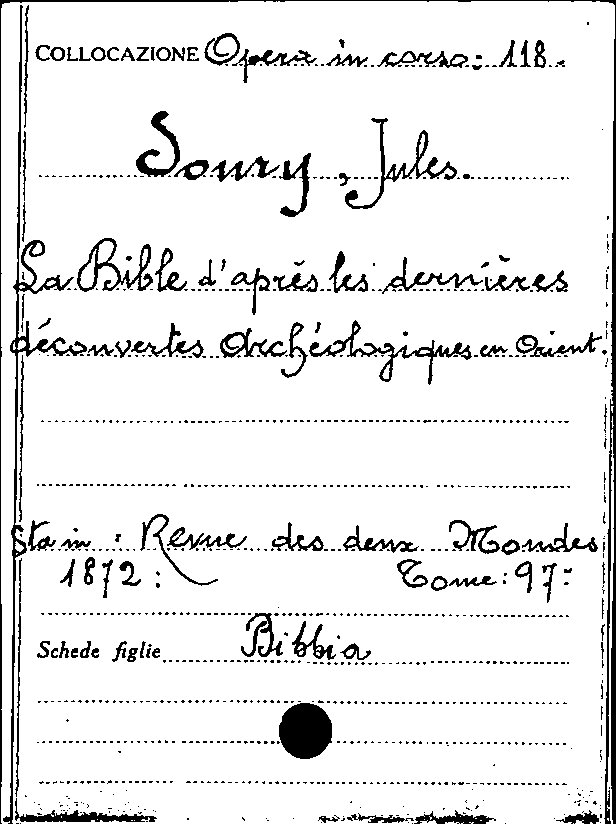 COLLOCAZIONE Opera in corso: 118.
Soury, Jules.
La Bible d'après les dernières
découvertes Archéologiques en Orient.
Sta in : Revue des deux Mondes
1872 : Tome: 97=
Schede figlie Bibbia